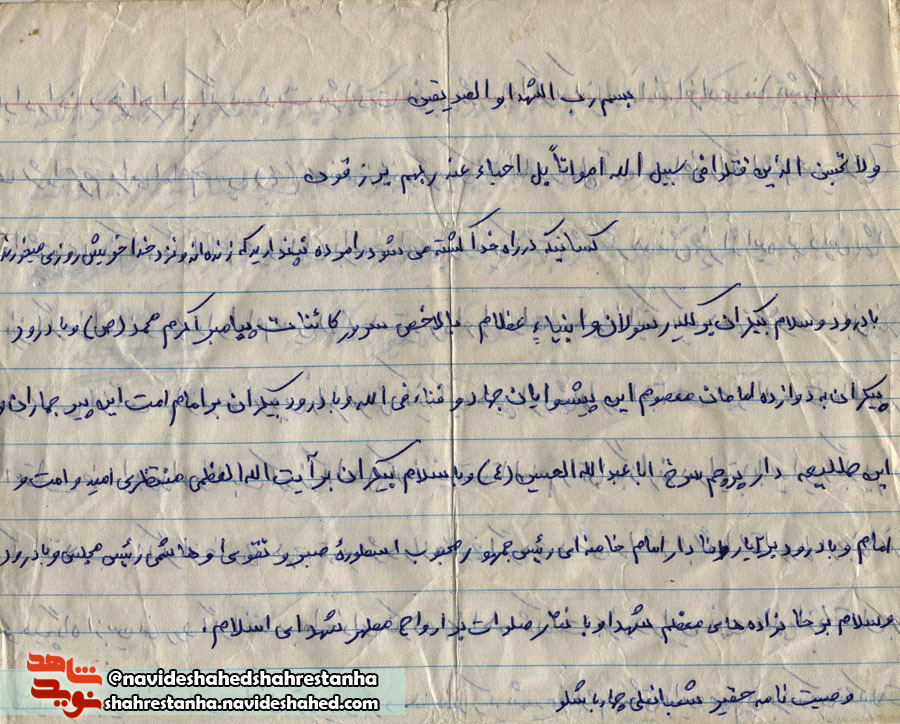 بسم رب الشهدا و الصدیقین
ولا تحسبن الذین قتلوا فی سبیل الله امواتاً بل احیاء عند ربهم یرزقون
کسانیکه در راه خدا کشته می شود را مرده نپندارید که زنده اند و نزد خدا خویش روزی میخورند
با درود و سلام بیکران بر کلیه رسولان و انبیاء عظام بالاخص سرور کائنات پیامبر اکرم محمد (ص) و با درود
بیکران به دوازده امامان معصوم این پیشوایان جهاد و فناء فی الله و با درود بیکران بر امام امت این پیر جماران و
این طلیعه دار پرچم سرخ ابا عبدالله الحسین (ع) و با سلام بیکران بر آیت الله العظمی منتظری امید امت و
امام و با درود بر یار وفا دار امام خامنه ای رئیس جمهور محبوب اسطورهٔ صبر و تقوی و هاشمی رئیس مجلس و با درود
و سلام بر خانواده های معظم شهدا و با نثار صلوات بر ارواح مطهر شهدای اسلام.
وصیت نامه حقیر شعبانعلی چهارباشلو
نوید شاهد
@navideshahedshahrestanha
shahrestanha.navideshahed.com